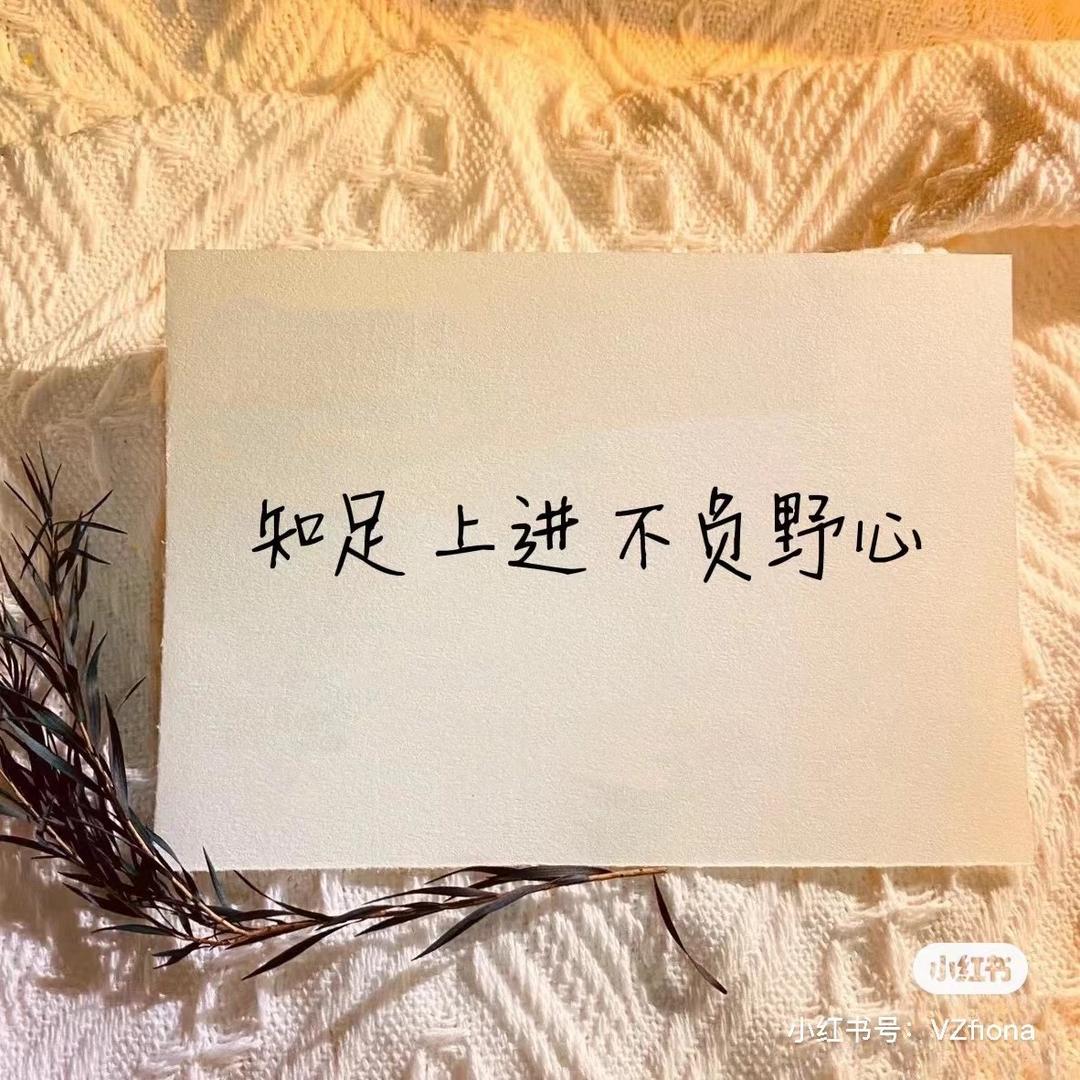 知足 上进 不负野心
小红书
小红书号：VZfiona